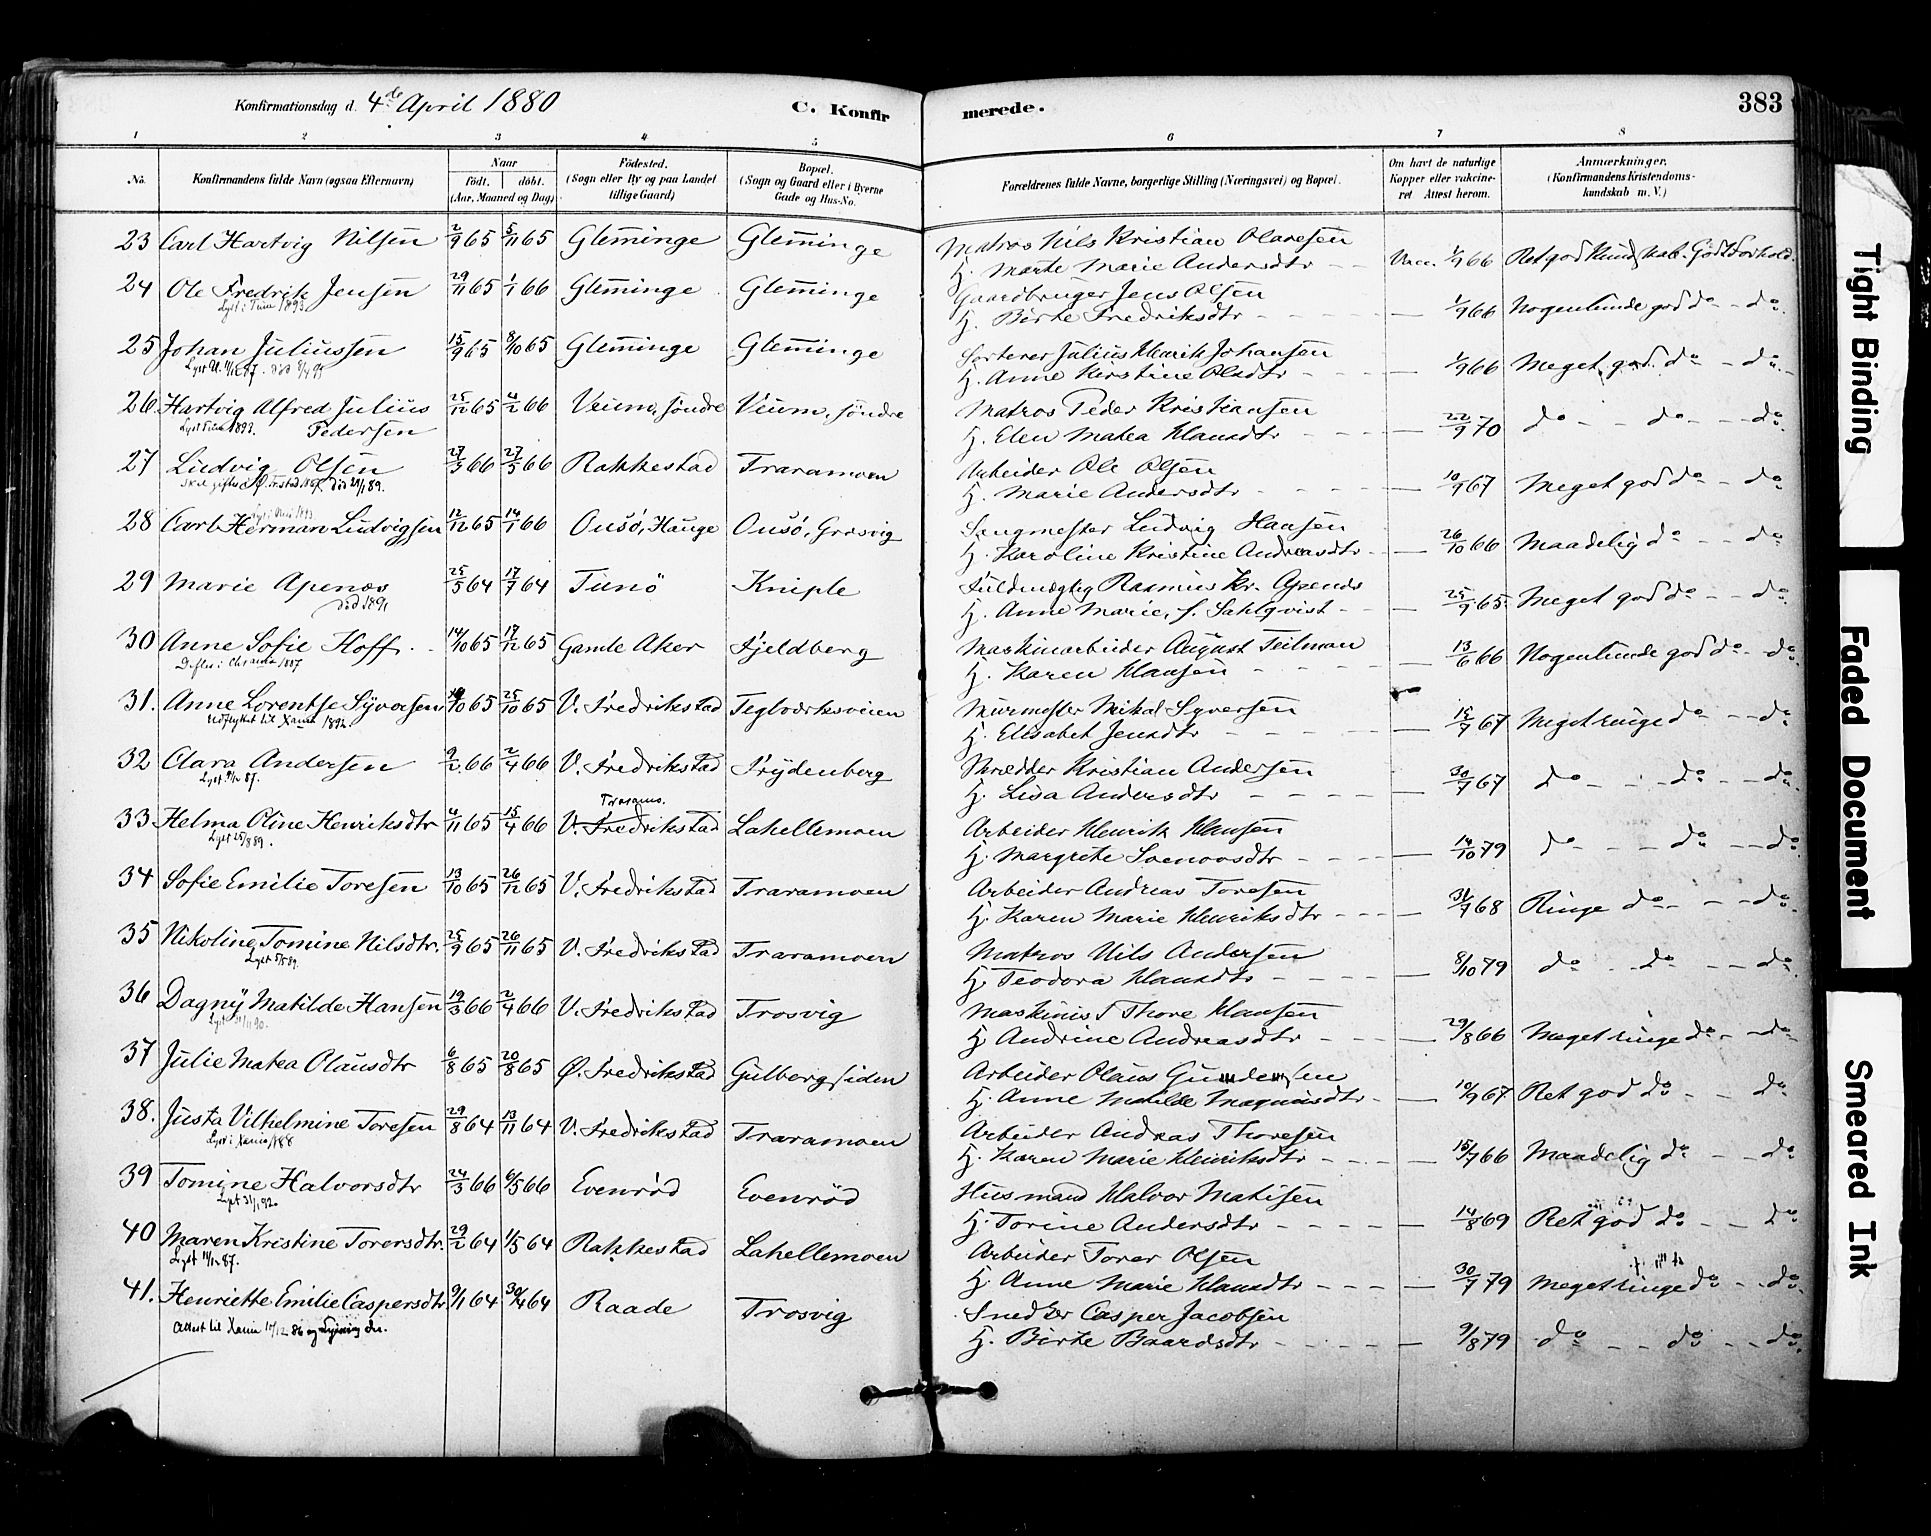 Konfirmationsdag d. 4de April 1880 C. Konfir merede. 383
1 2 3 4 5 6 7 8
No. Konfirmandens fulde Navn (ogsaa Efternavn) Naar født. døbt. (Aar, Maaned og Dag) Födested. (Sogn eller By og paa Landet tillige Gaard) Bopæl. (Sogn og Gaard eller i Byerne Gade og Hus-No. Forældrenes fulde Navne, borgerlige Stilling (Næringsvei) og Bopæl. Om havt de naturlige Kopper eller vakcineret Attest herom. Anmærkninger. (Konfirmandens Kristendomskundskab m. V.)
23 Carl Hartvig Nilsen 2/9 65 5/11 65 Gleminge Gleminge Matros Nils Kristian Olavesen
H. Marte Marie Andersdtr Vacc. 1/9 66 Ret god Kundskab. Godt Forhold.
24 Ole Fredrik Jensen 29/11 65 1/1 66 Gleminge Gleminge Gaardbruger Jens Olsen
H. Birte Fredriksdtr 1/9 66 Nogenlunde god do - do
25 Johan Juliussen 15/9 65 8/10 65 Gleminge Gleminge Sorterer Julius Henrik Johansen
H. Anne Kirstine Olsdtr 1/9 66 Meget god do - do
26 Hartvig Alfred Julius 25/12 65 4/2 66 Veum, söndre Veum, söndre Matros Peder Kristiansen
Pedersen H. Elen Matea Hansdtr 22/9 70 do - do - do
27 Ludvig Olsen 27/3 66 27/5 66 Rakkestad Traramoen Arbeider Ole Olsen
H. Marie Andersdtr 10/9 67 Meget god do - do
28 Carl Herman Ludvigsen 12/12 65 14/1 66 Onsö, Hauge Onsö, Gresvig Saugmester Ludvig Hansen
H. Karoline Kristine Andreasdtr 26/10 66 Maadelig do - do
29 Marie Apenæs 25/5 64 17/7 64 Tunö Kniple Fuldmægtig Rasmus Kr. Apenæs
död 1891 H. Anne Marie, f. Sahlqvist 25/9 65 Meget god do - do
30 Anne Sofie Hoff 14/10 65 17/12 65 Gamle Aker Fjeldberg Maskinarbeider August Teilman
H. Karen Hansen 13/6 66 Nogenlunde god do - do
31. Anne Lorentse Syversen 65 25/10 65 V. Fredrikstad Teglværksveien Murmester Mikal Syversen
Udflyttet til Xania 1892. H. Elisabet Jensdtr 15/7 67 Meget ringe do - do
32 Clara Andersen 9/2 66 2/4 66 V. Fredrikstad Frydenberg Skrædder Kristian Andersen
H. Lisa Andersdtr 30/7 67 do - do - do
33 Helma Oline Henriksdtr 4/11 65 15/4 66 V. Fredrikstad Lahellemoen Arbeider Henrik Hansen
Lyst 25/8 89. H. Margrete 14/10 79 do - do - do
34 Sofie Emilie Toresen 13/10 65 26/12 65 V. Fredrikstad Traramoen Arbeider Andreas Toresen
H. Karen Marie Henriksdtr 31/7 68 Ringe do - do
35 Nikoline Tomine Nilsdtr. 25/9 65 26/11 65 V. Fredrikstad Traramoen Matros Nils Andersen
Lyst 5/5 89. H. Teodora Hansdtr 8/10 79 do - do - do
36 Dagny Matilde Hansen 19/3 66 2/4 66 V. Fredrikstad Trosvig Maskinist Thore Hansen
H. Andrine Andreasdtr 29/8 66 Meget ringe do - do
37 Julie Matea Olausdtr 6/8 65 20/8 65 Ø. Fredrikstad Gulbergsiden Arbeider Olaus Gundersen
H. Anne Matilde Magnusdtr 10/9 67 Ret god do - do
38. Justa Vilhelmine Toresen 29/8 64 13/11 64 V. Fredrikstad Traramoen Arbeider Andreas Thoresen
Lyst i Xania 1888 H. Karen Marie Henriksdtr 15/7 66 Maadelig do - do
39 Tomine Halvorsdtr 24/3 66 6/5 66 Evenröd Evenröd Husmand Halvor Matisen
Lyst 31/1 92 H. Torine Andersdtr 14/8 69 Ret god do - do
40 Maren Kristine Torersdtr. 29/2 64 1/5 64 Rakkestad Lahellemoen Arbeider Torer Olsen
Lyst 11/12 87. H. Anne Marie Hansdtr 30/7 79 Meget ringe do - do
41. Henriette Emilie Caspersdtr 9/1 64 30/4 64 Raade Trosvig Snedker Casper Jacobsen
Attest til Xania 11/12 86 og Lysning do. H. Birte Baardsdtr 9/8 79 do - do - do
Tight Binding
Faded Document
Smeared Ink